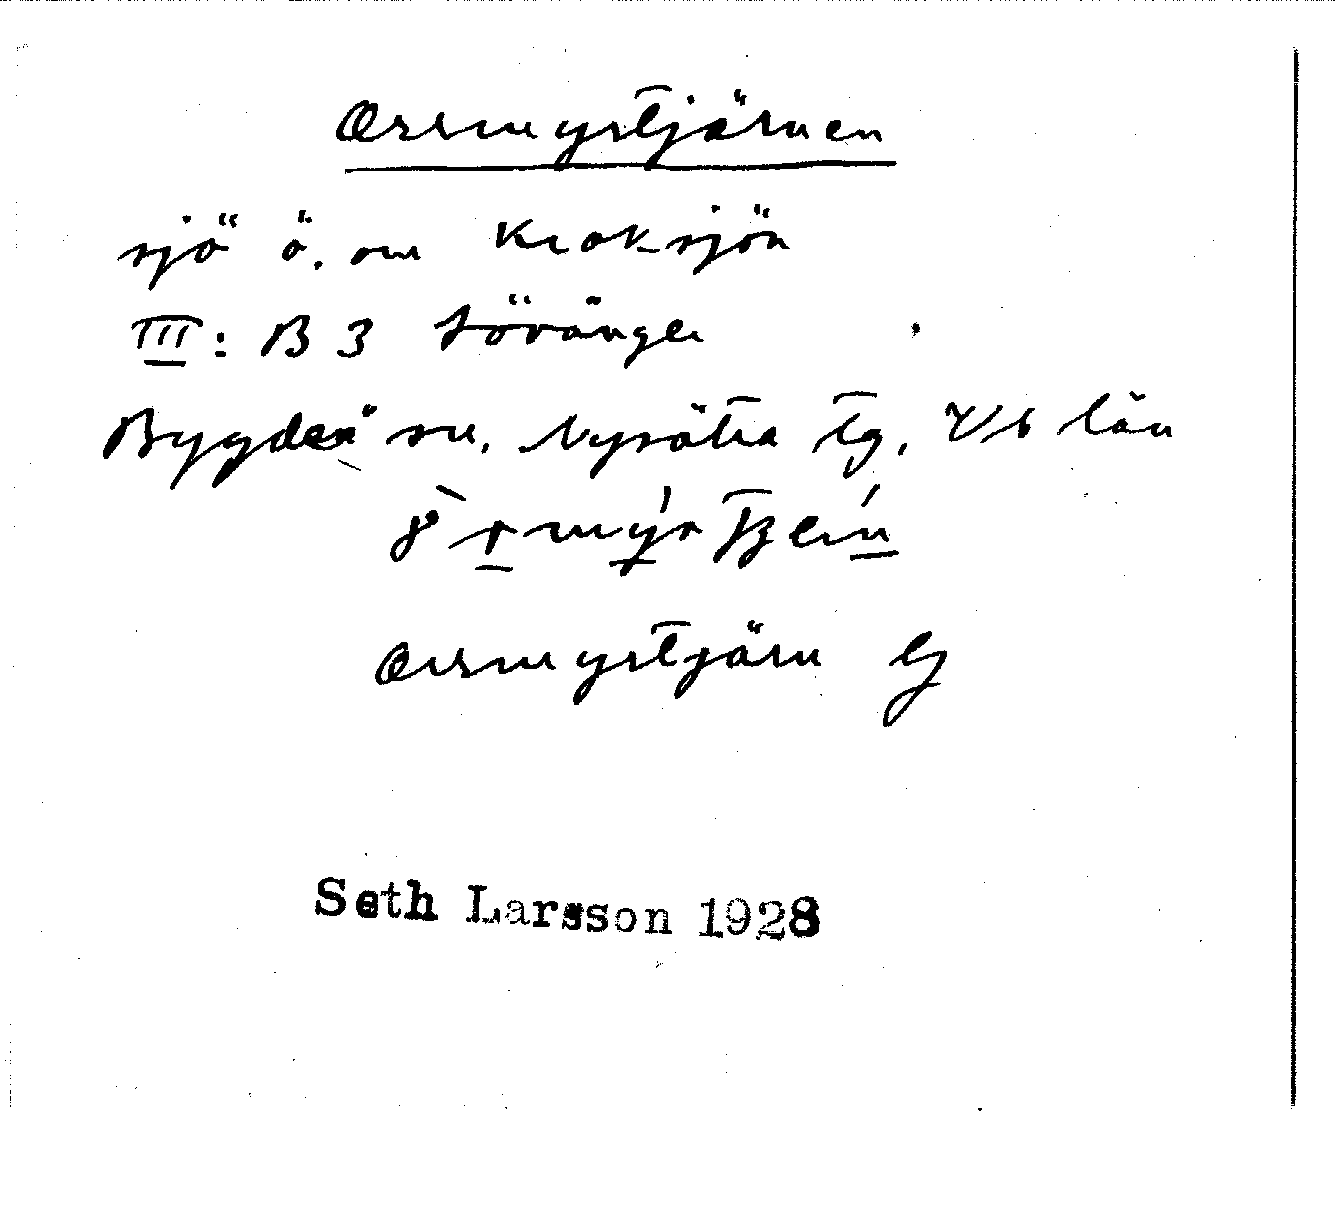 Orrmyrtjärnen
sjö ö. om Kroksjön
III: B 3 Lövånger
Bygdeå sn, Nysätra tg, Vb län
Orrmyrtjärn
Seth Larsson 1928